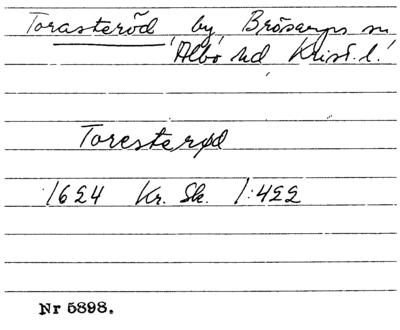 Torasteröd, by, Brösarps sn
Albo hd Krist. l.
Toresterød
1624 Kr. Sk. 1:422
Nr 5898.